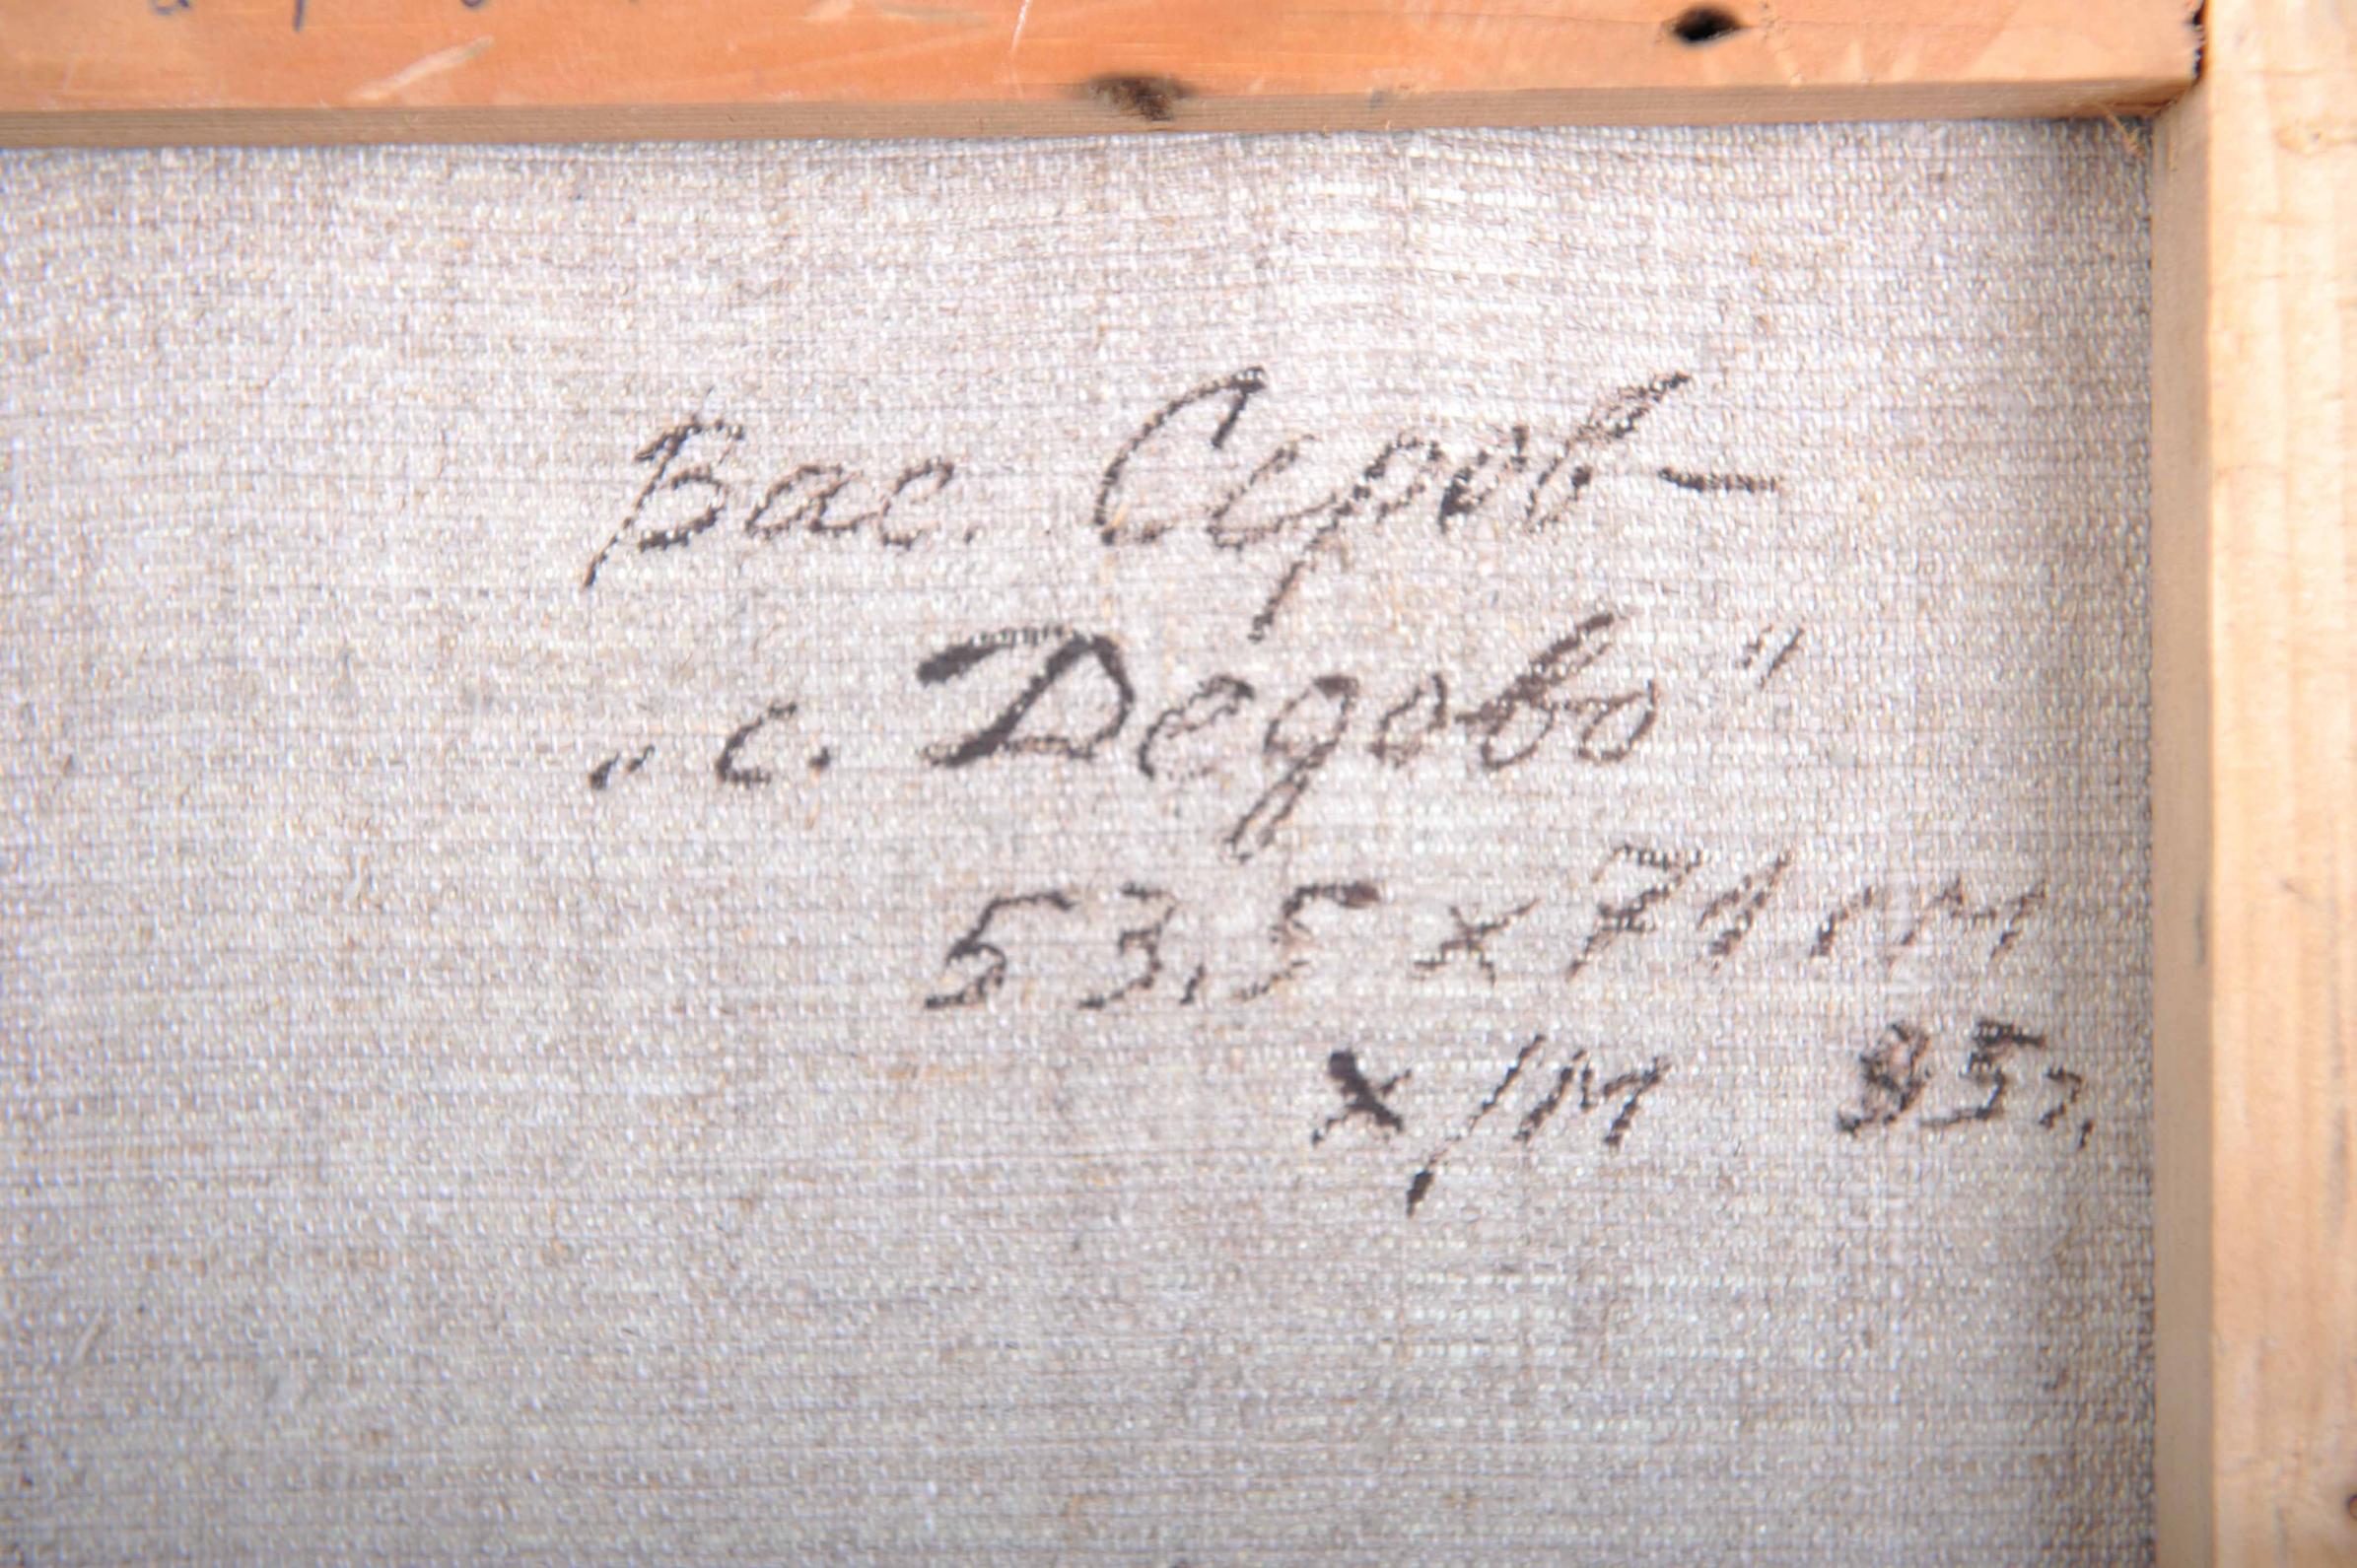 Вас. Серов —
„с. Дедово"
53,5 х 71 см
х/м 95 г.